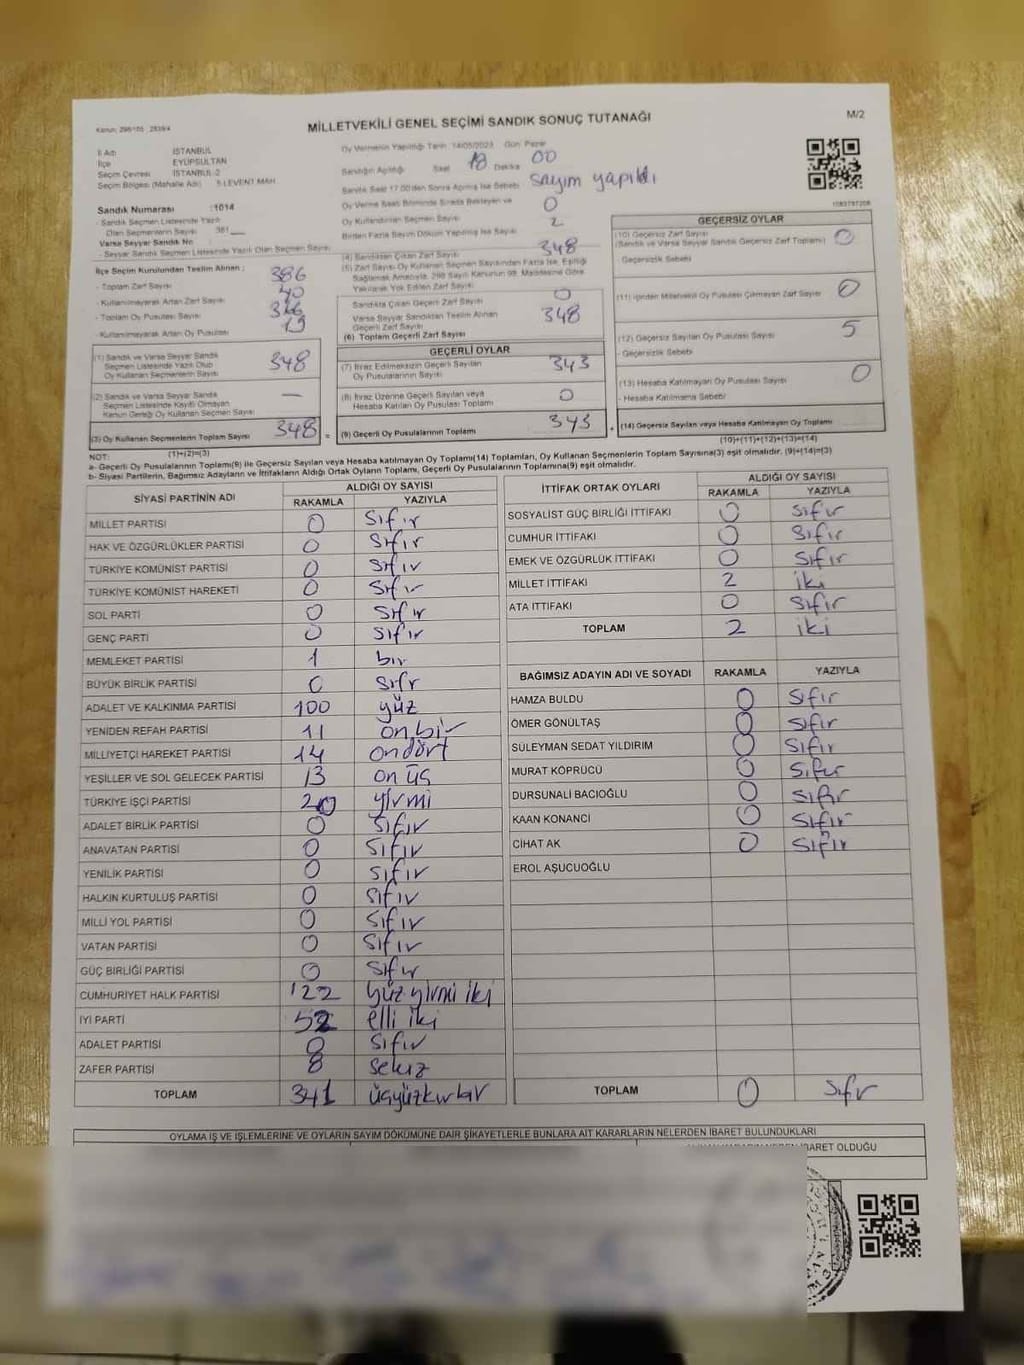 Kanun: 298/105 2839/4
MİLLETVEKİLİ GENEL SEÇİMİ SANDIK SONUÇ TUTANAĞI
M/2
İl Adı İSTANBUL
İlçe EYÜPSULTAN
Seçim Çevresi İSTANBUL-2
Seçim Bölgesi (Mahalle Adı) 5.LEVENT MAH.
Oy Vermenin Yapıldığı Tarih 14/05/2023 Gün Pazar
Sandığın Açıldığı Saat 18 Dakika 00
Sandık Saat 17.00'den Sonra Açılmış İse Sebebi sayım yapıldı
Oy Verme Saati Bitiminde Sırada Bekleyen ve
Oy Kullandırılan Seçmen Sayısı 0
Birden Fazla Sayım Döküm Yapılmış İse Sayısı 2
Sandık Numarası :1014
- Sandık Seçmen Listesinde Yazılı
Olan Seçmenlerin Sayısı 381
Varsa Seyyar Sandık No
- Seyyar Sandık Seçmen Listesinde Yazılı Olan Seçmen Sayısı
İlçe Seçim Kurulundan Teslim Alınan ;
- Toplam Zarf Sayısı 386
- Kullanılmayarak Artan Zarf Sayısı 40
- Toplam Oy Pusulası Sayısı
- Kullanılmayarak Artan Oy Pusulası 19
(1) Sandık ve Varsa Seyyar Sandık
Seçmen Listesinde Yazılı Olup
Oy Kullanan Seçmenlerin Sayısı 348
(2) Sandık ve Varsa Seyyar Sandık
Seçmen Listesinde Kayıtlı Olmayan
Kanun Gereği Oy Kullanan Seçmen Sayısı —
(3) Oy Kullanan Seçmenlerin Toplam Sayısı 348 =
(4) Sandıktan Çıkan Zarf Sayısı 348
(5) Zarf Sayısı Oy Kullanan Seçmen Sayısından Fazla İse, Eşitliği
Sağlamak Amacıyla, 298 Sayılı Kanunun 98. Maddesine Göre
Yakılarak Yok Edilen Zarf Sayısı 0
Sandıkta Çıkan Geçerli Zarf Sayısı 348
Varsa Seyyar Sandıktan Teslim Alınan
Geçerli Zarf Sayısı
(6) Toplam Geçerli Zarf Sayısı
GEÇERLİ OYLAR
(7) İtiraz Edilmeksizin Geçerli Sayılan
Oy Pusulalarının Sayısı 343
(8) İtiraz Üzerine Geçerli Sayılan veya
Hesaba Katılan Oy Pusulası Toplamı 0
(9) Geçerli Oy Pusulalarının Toplamı 343 +
GEÇERSİZ OYLAR
(10) Geçersiz Zarf Sayısı
(Sandık ve Varsa Seyyar Sandık Geçersiz Zarf Toplamı) 0
- Geçersizlik Sebebi
(11) İçinden Milletvekili Oy Pusulası Çıkmayan Zarf Sayısı 0
(12) Geçersiz Sayılan Oy Pusulası Sayısı 5
- Geçersizlik Sebebi
(13) Hesaba Katılmayan Oy Pusulası Sayısı 0
- Hesaba Katılmama Sebebi
(14) Geçersiz Sayılan veya Hesaba Katılmayan Oy Toplamı
NOT: (1)+(2)=(3)
(10)+(11)+(12)+(13)=(14)
a- Geçerli Oy Pusulalarının Toplamı(9) ile Geçersiz Sayılan veya Hesaba Katılmayan Oy Toplamı(14) Toplamları, Oy Kullanan Seçmenlerin Toplam Sayısına(3) eşit olmalıdır. (9)+(14)=(3)
b- Siyasi Partilerin, Bağımsız Adayların ve İttifakların Aldığı Ortak Oyların Toplamı, Geçerli Oy Pusulalarının Toplamına(9) eşit olmalıdır.
SİYASİ PARTİNİN ADI ALDIĞI OY SAYISI
RAKAMLA YAZIYLA
MİLLET PARTİSİ 0 Sıfır
HAK VE ÖZGÜRLÜKLER PARTİSİ 0 Sıfır
TÜRKİYE KOMÜNİST PARTİSİ 0 Sıfır
TÜRKİYE KOMÜNİST HAREKETİ 0 Sıfır
SOL PARTİ 0 Sıfır
GENÇ PARTİ 0 Sıfır
MEMLEKET PARTİSİ 1 bir
BÜYÜK BİRLİK PARTİSİ 0 Sıfır
ADALET VE KALKINMA PARTİSİ 100 yüz
YENİDEN REFAH PARTİSİ 11 onbir
MİLLİYETÇİ HAREKET PARTİSİ 14 ondört
YEŞİLLER VE SOL GELECEK PARTİSİ 13 on üç
TÜRKİYE İŞÇİ PARTİSİ 20 yirmi
ADALET BİRLİK PARTİSİ 0 Sıfır
ANAVATAN PARTİSİ 0 Sıfır
YENİLİK PARTİSİ 0 Sıfır
HALKIN KURTULUŞ PARTİSİ 0 Sıfır
MİLLİ YOL PARTİSİ 0 Sıfır
VATAN PARTİSİ 0 Sıfır
GÜÇ BİRLİĞİ PARTİSİ 0 Sıfır
CUMHURİYET HALK PARTİSİ 122 yüz yirmi iki
İYİ PARTİ 52 elli iki
ADALET PARTİSİ 0 Sıfır
ZAFER PARTİSİ 8 Sekiz
TOPLAM 341 üçyüzkırkbir
İTTİFAK ORTAK OYLARI ALDIĞI OY SAYISI
RAKAMLA YAZIYLA
SOSYALİST GÜÇ BİRLİĞİ İTTİFAKI 0 Sıfır
CUMHUR İTTİFAKI 0 Sıfır
EMEK VE ÖZGÜRLÜK İTTİFAKI 0 Sıfır
MİLLET İTTİFAKI 2 iki
ATA İTTİFAKI 0 Sıfır
TOPLAM 2 iki
BAĞIMSIZ ADAYIN ADI VE SOYADI RAKAMLA YAZIYLA
HAMZA BULDU 0 Sıfır
ÖMER GÖNÜLTAŞ 0 Sıfır
SÜLEYMAN SEDAT YILDIRIM 0 Sıfır
MURAT KÖPRÜCÜ 0 Sıfır
DURSUNALİ BACIOĞLU 0 Sıfır
KAAN KONANCI 0 Sıfır
CİHAT AK 0 Sıfır
EROL AŞUCUOĞLU
TOPLAM 0 Sıfır
OYLAMA İŞ VE İŞLEMLERİNE VE OYLARIN SAYIM DÖKÜMÜNE DAİR ŞİKAYETLERLE BUNLARA AİT KARARLARIN NELERDEN İBARET BULUNDUKLARI
İBARET OLDUĞU